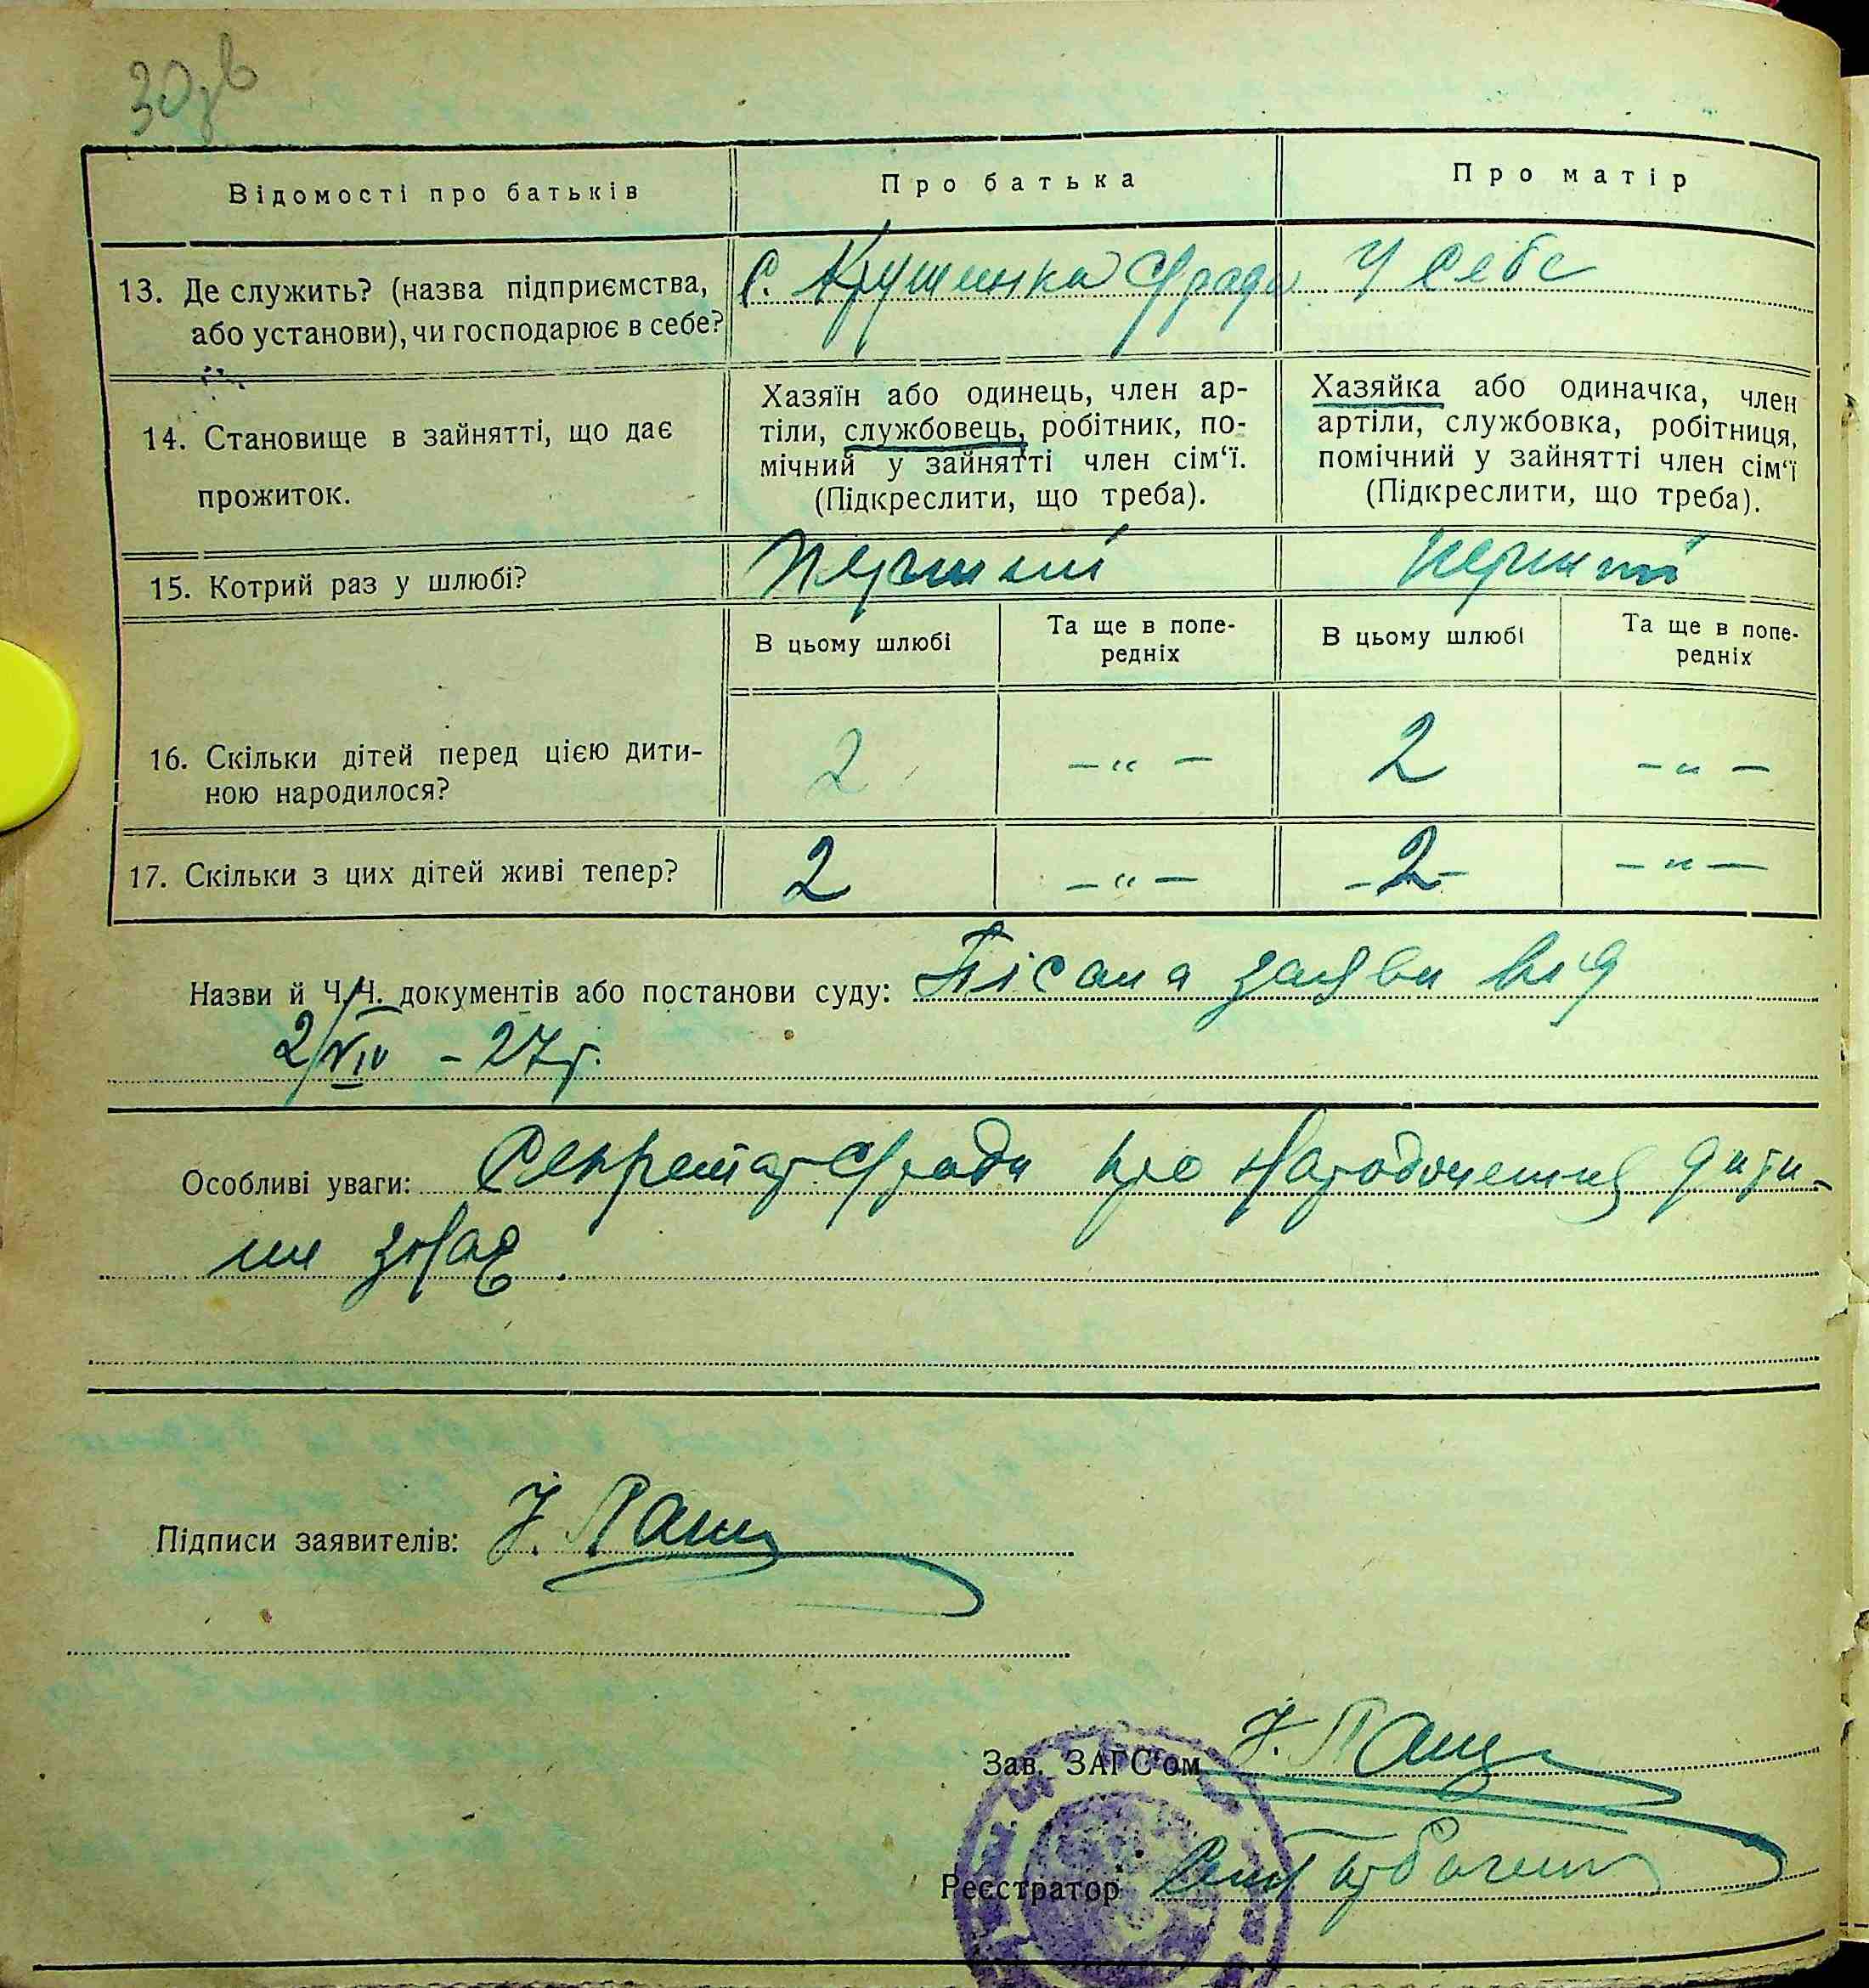 30зв
Відомості про батьків
Про батька
Про матір
13. Де служить? (назва підприємства,
або установи), чи господарює в себе?
С. Крушинка С/ради
У себе
14. Становище в зайнятті, що дає
прожиток.
Хазяїн або одинець, член ар-
тіли, службовець, робітник, по-
мічний у зайнятті член сім‘ї.
(Підкреслити, що треба).
Хазяйка або одиначка, член
артіли, службовка, робітниця,
помічний у зайнятті член сім‘ї
(Підкреслити, що треба).
15. Котрий раз у шлюбі?
Перший
перший
В цьому шлюбі
Та ще в попе-
редніх
В цьому шлюбі
Та ще в попе-
редніх
16. Скільки дітей перед цією дити-
ною народилося?
2
— „ —
2
— „ —
17. Скільки з цих дітей живі тепер?
2
— „ —
- 2 -
— „ —
Назви й Ч.Ч. документів або постанови суду: Пісана заява від
- 27 р.
Особливі уваги: Секретар С/ради про дити-
ни
Підписи заявителів:
Зав. ЗАГС‘ом
Реєстратор